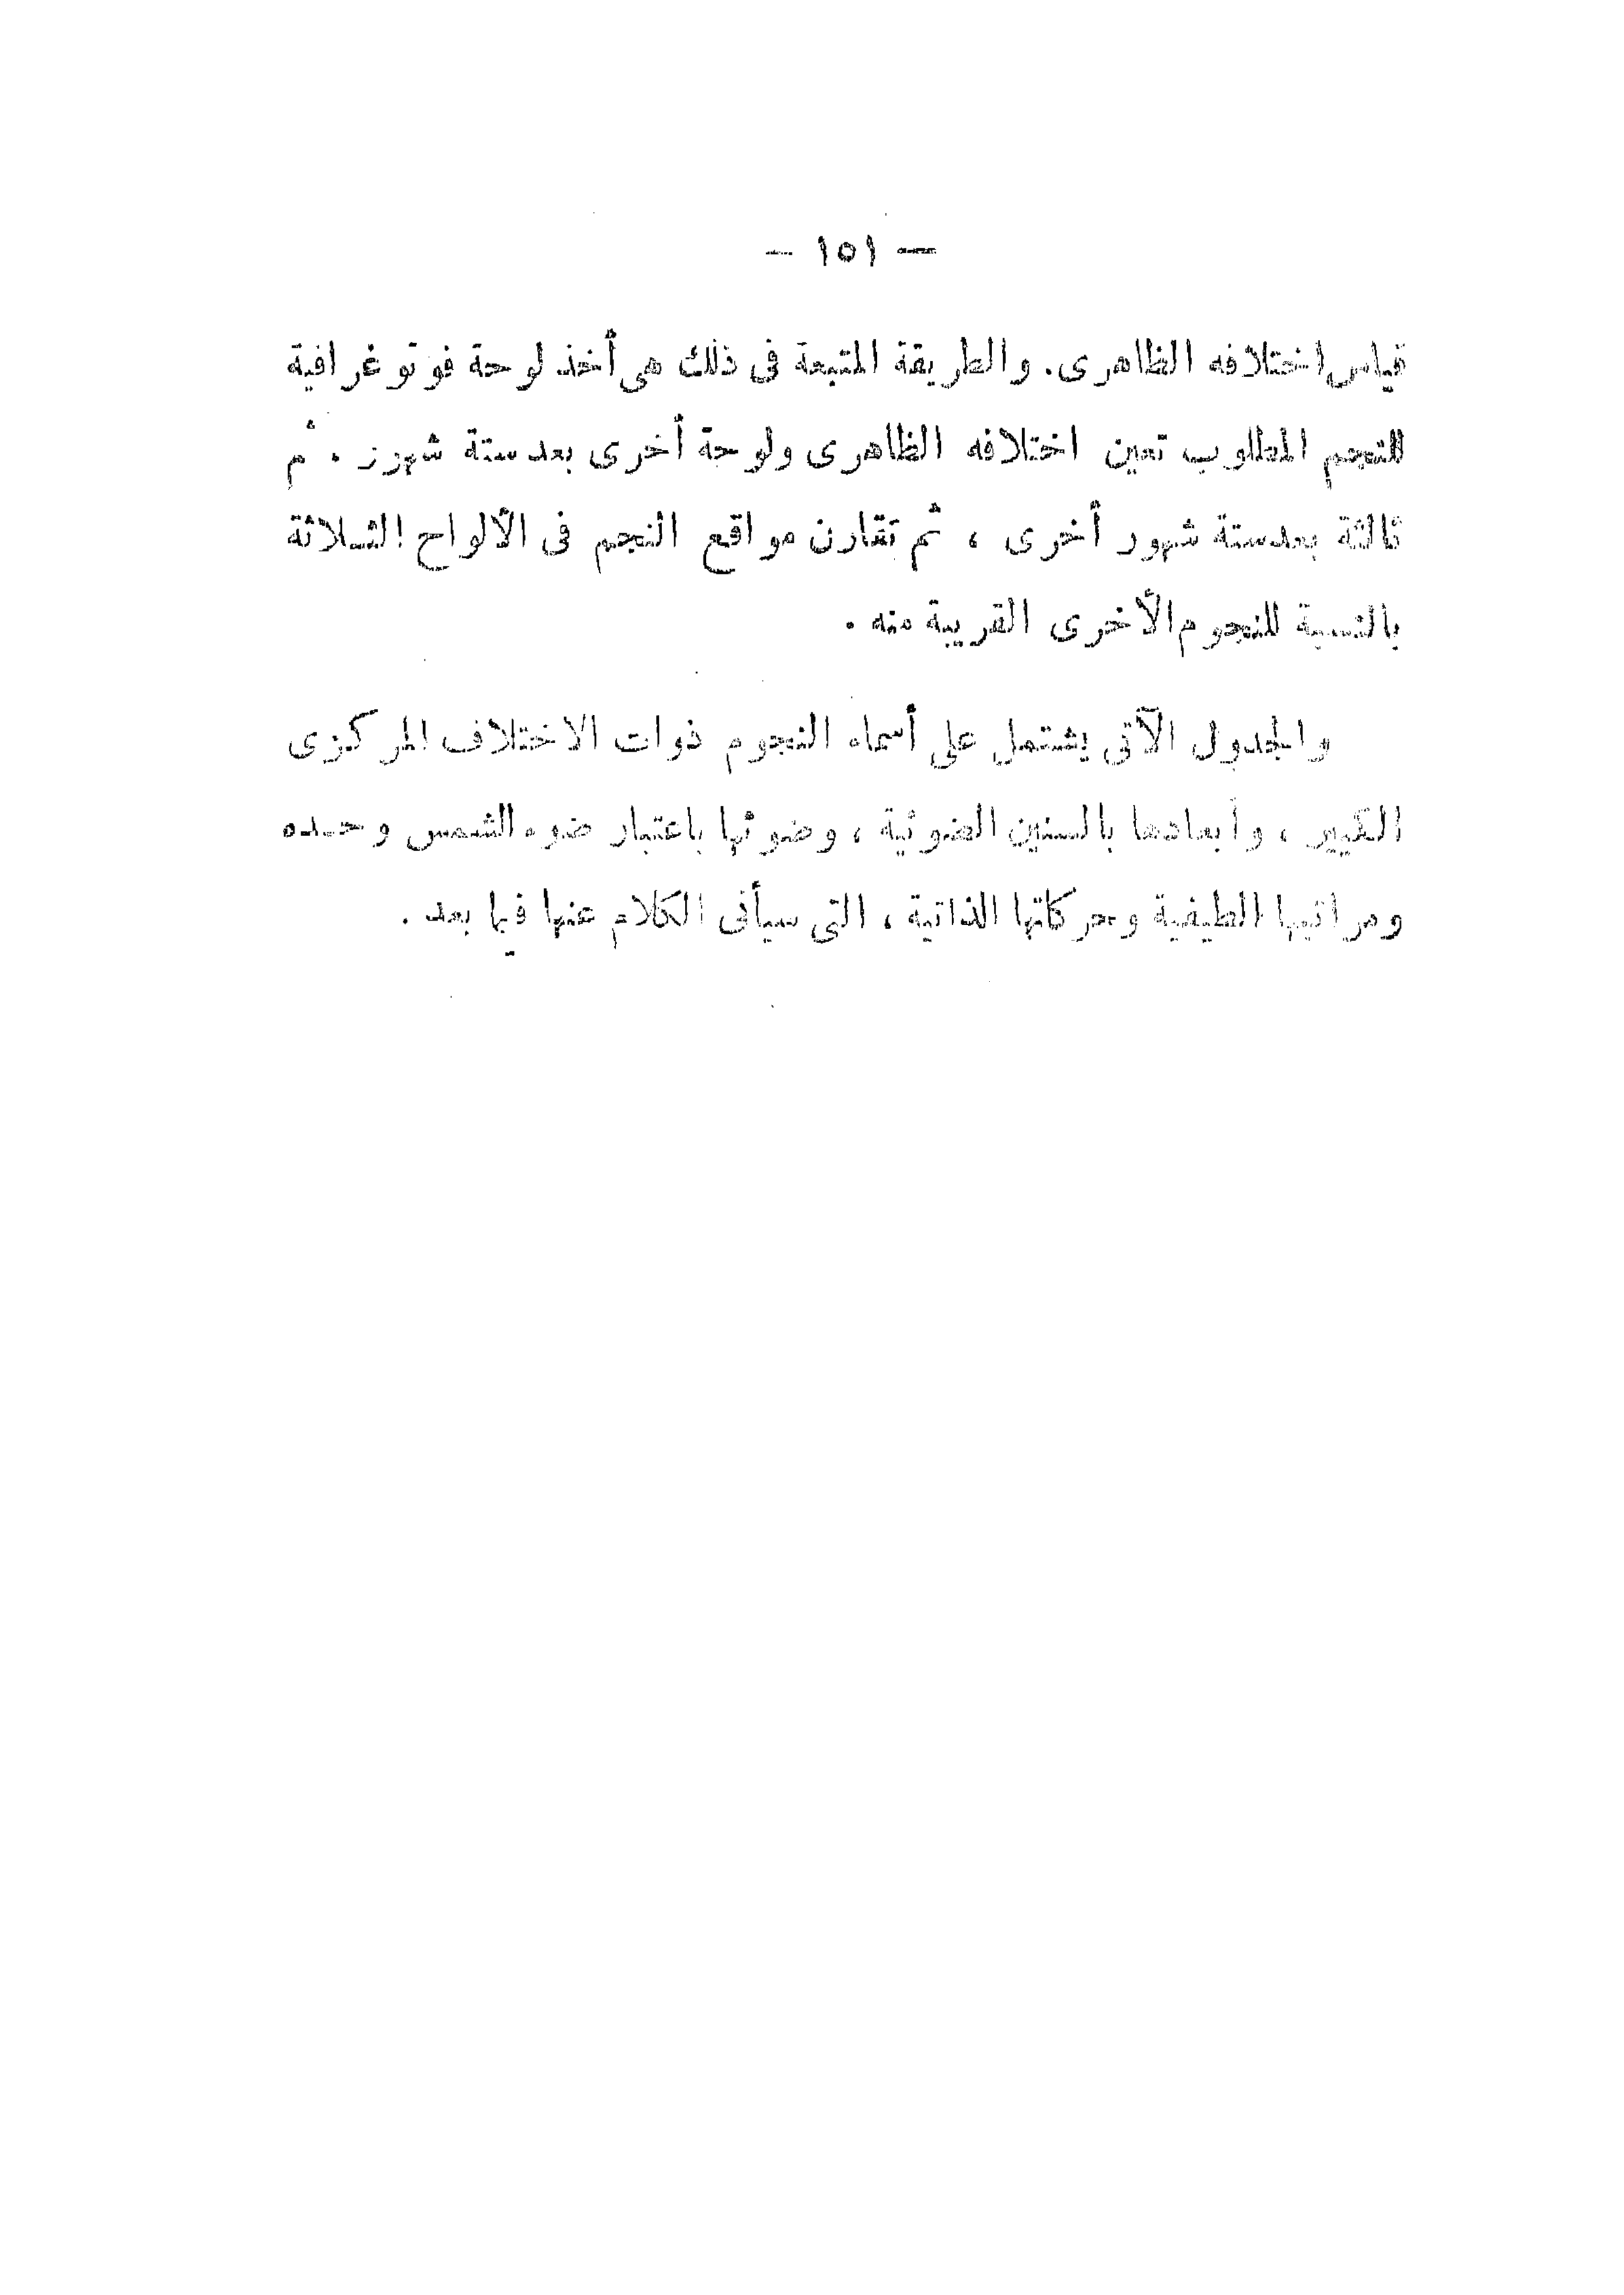 — ١٥١ —
قياس اختلافه الظاهرى. والطريقة المتبعة فى ذلك هى أخذ لوحة فوتوغرافية
للنجم المطلوب تعين اختلافه الظاهرى ولوحة أخرى بعد ستة شهور. ثم
ثالثة بعد ستة شهور أخرى ، ثم تقارن مواقع النجم فى الألواح الثلاثة
بالنسبة للنجوم الأخرى القريبة منه .
والجدول الآتى يشتمل على أسماء النجوم ذوات الاختلاف المركزى
الكبير ، وأبعادها بالسنين الضوئية ، وضوئها باعتبار ضوء الشمس وحده
ومراتبها الطيفية وحركاتها الذاتية ، التى سيأتى الكلام عنها فيما بعد .